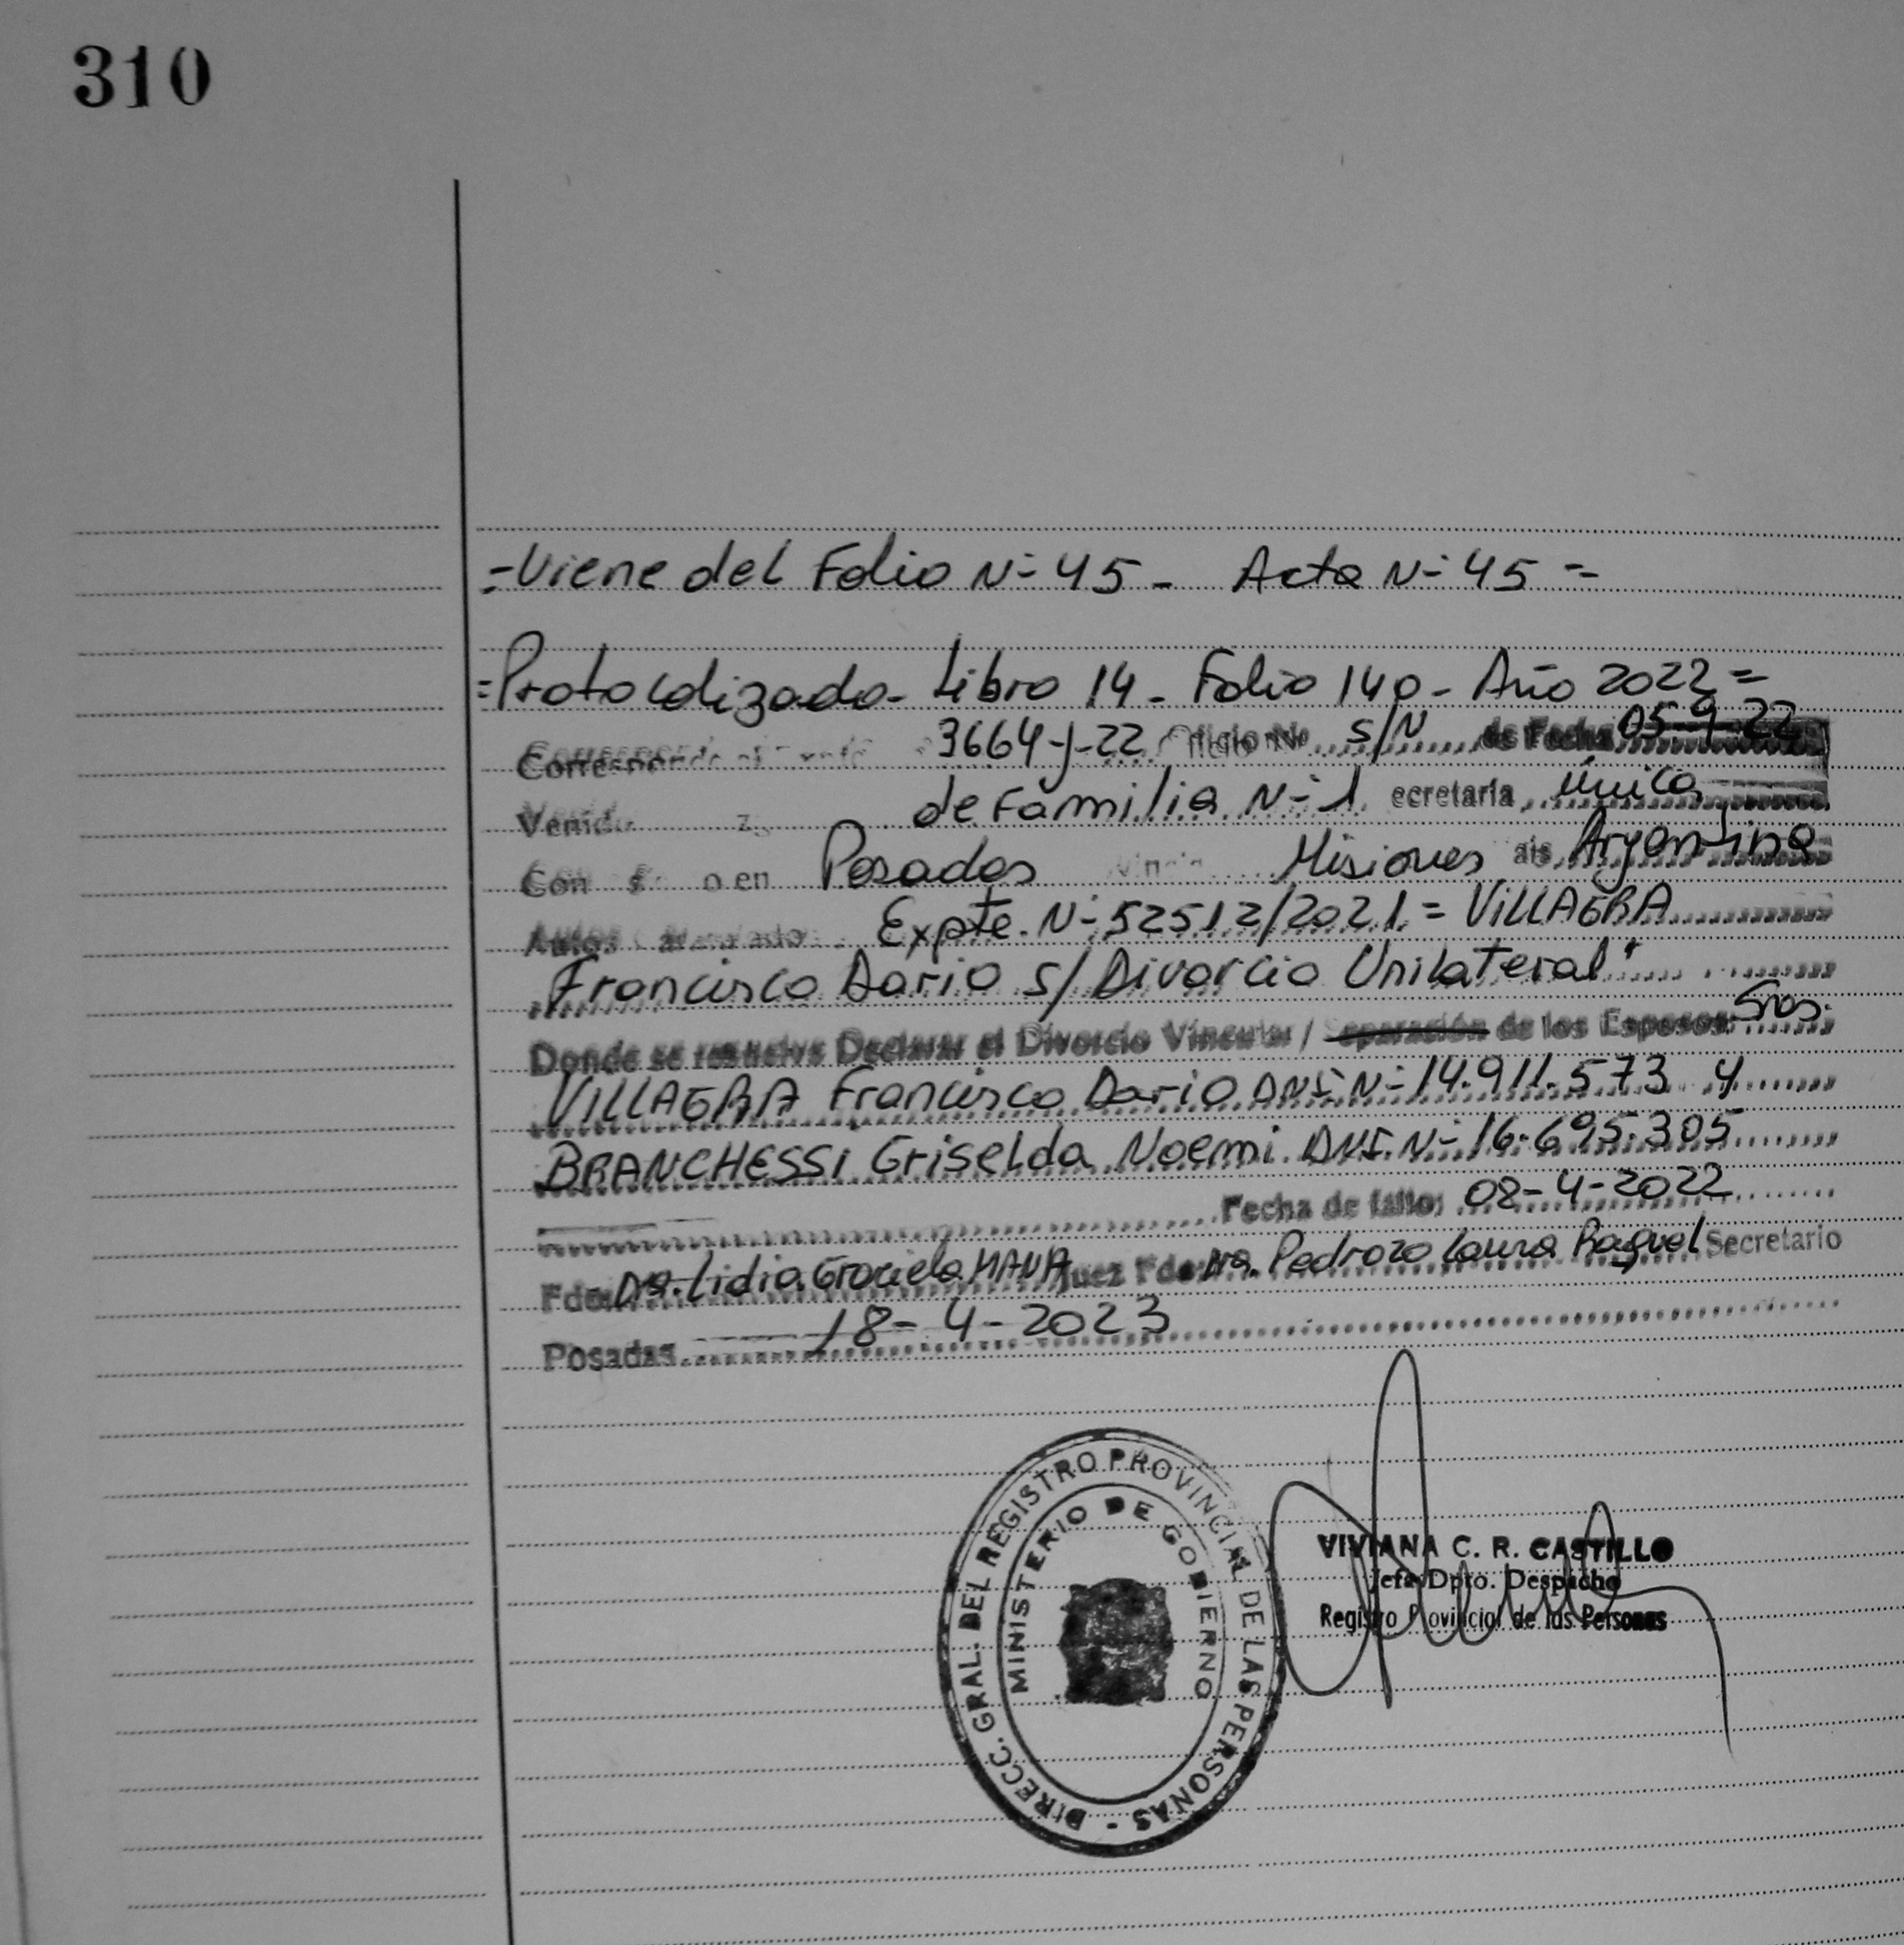 310
=Viene del Folio N-45 - Acta N-45 =
=Protocolizado- Libro 14 - Folio 140 - Año 2022 =
Corresponde 3664-J-22 Oficio No S/N de Fecha 05-9-22
de Familia N-1 ecretaria Única
Con en Posadas Misiones ais Argentina
Autos Expte. N-52512/2021 = VILLAGRA
Francisco Dario S/ Divorcio Unilateral"
Donde se resuelve Declarar el Divorcio Vincular / Separación de los Esposos: Sres.
VILLAGRA Francisco Dario DNI N-14.911.573 y
BRANCHESSI Griselda Noemi DNI. N-16.695.305
Fecha de fallo: 08-4-2022
Fdo: Dra. Lidia Graciela MAUA Juez Fdo: Dra. Pedrozo Laura Raquel Secretario
Posadas 18-4-2023
DIRECC. GRAL. DEL REGISTRO PROVINCIAL DE LAS PERSONAS -
MINISTERIO DE GOBIERNO
VIVIANA C. R. CASTILLO
Jefa Dpto. Despacho
Registro Provincial de las Personas